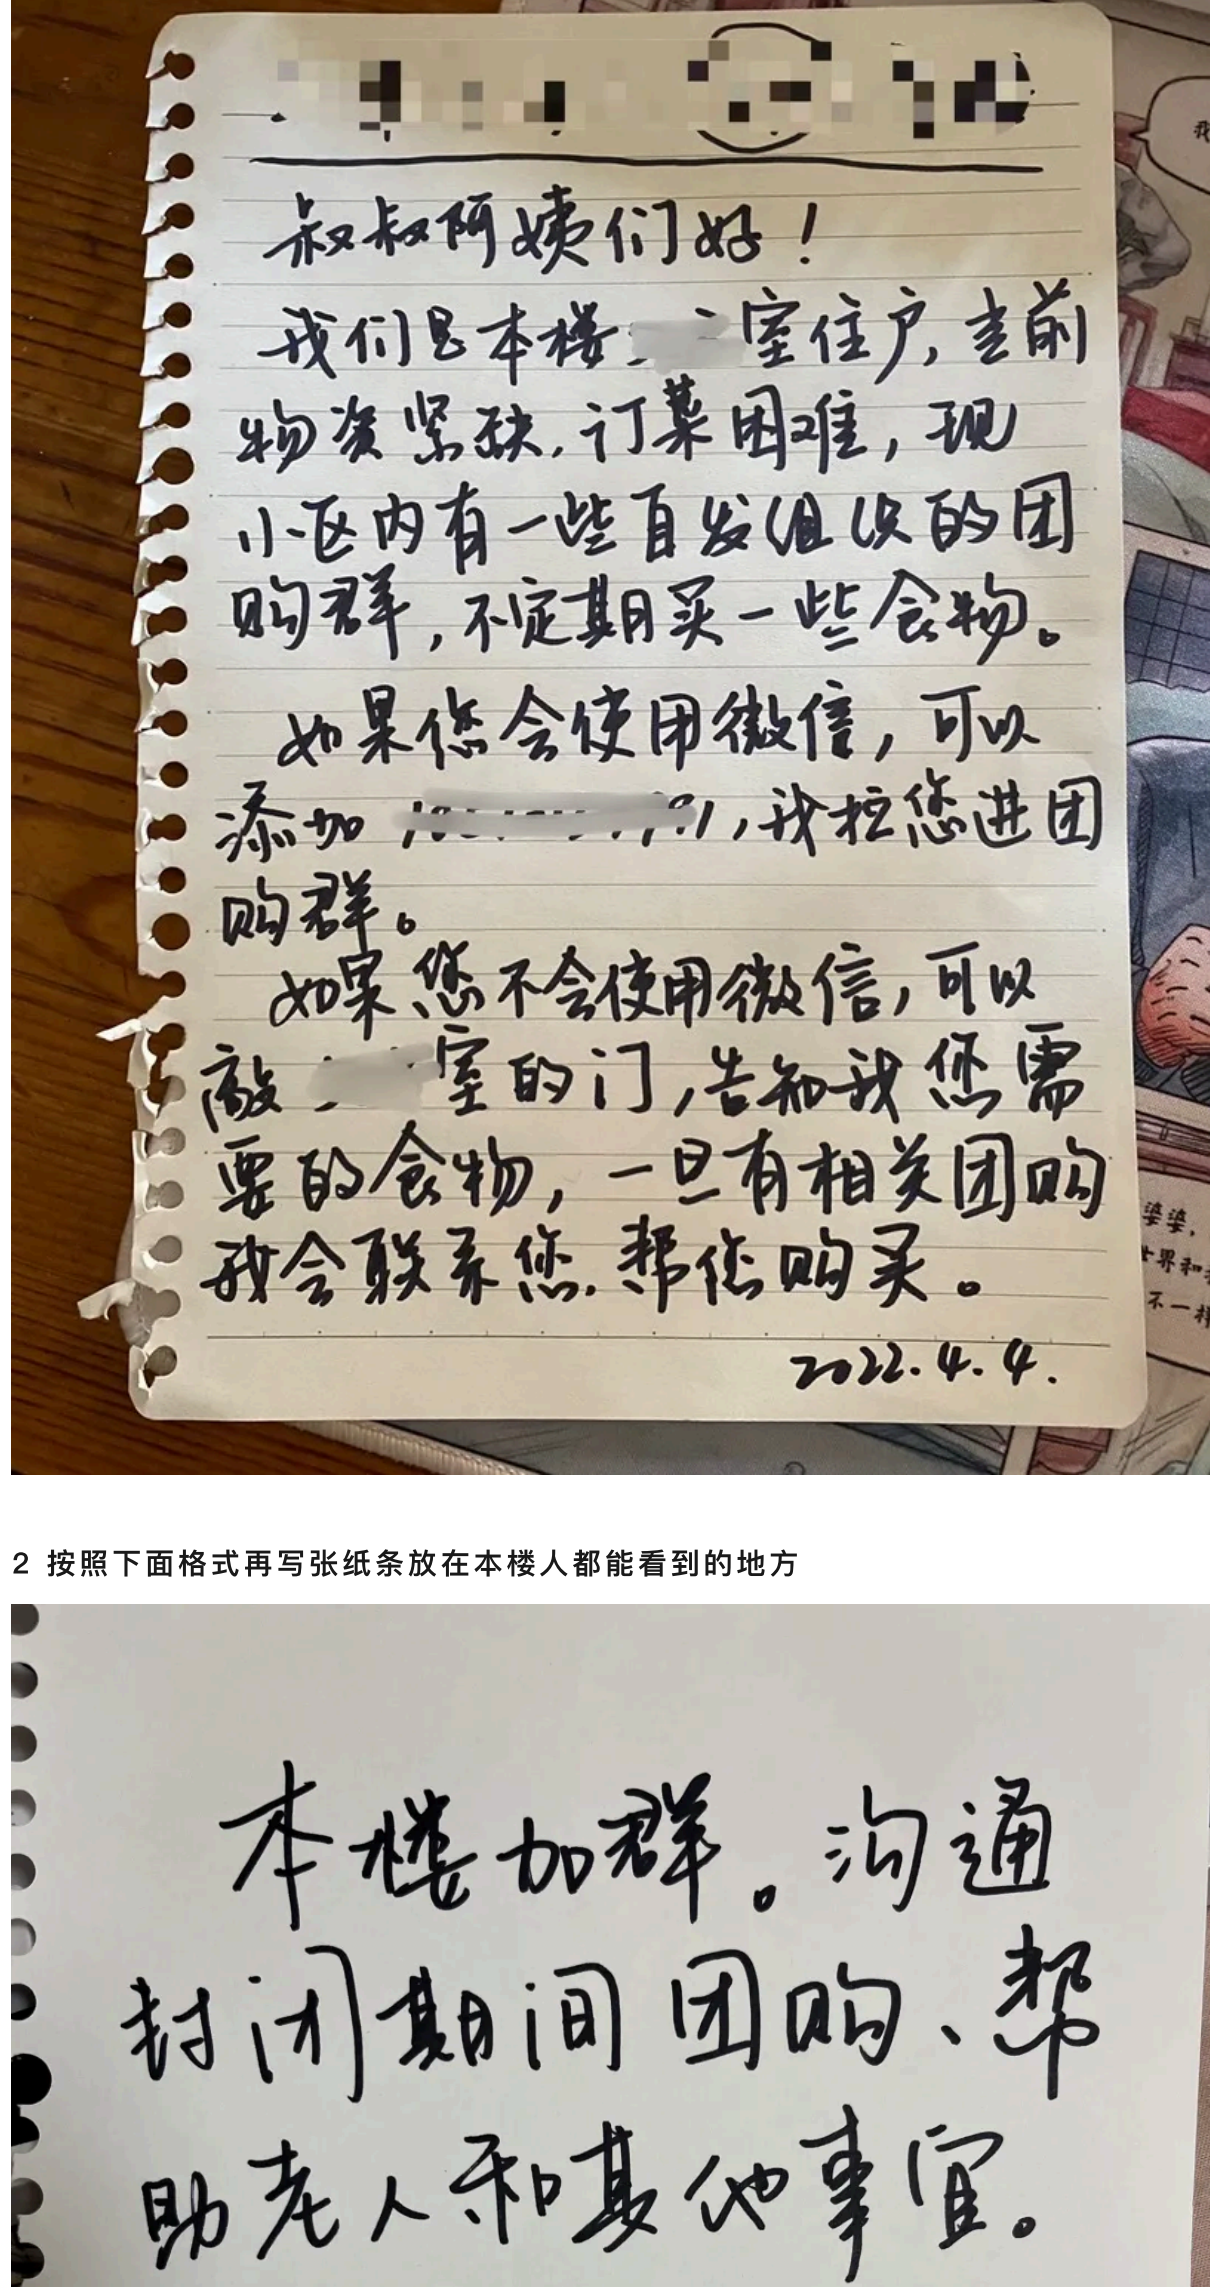 叔叔阿姨们好！
我们是本楼室住户，当前
物资紧缺，订菜困难，现
小区内有一些自发组织的团
购群，不定期买一些食物。
如果您会使用微信，可以
添加，我拉您进团
购群。
如果您不会使用微信，可以
敲室的门，告知我您需
要的食物，一旦有相关团购
我会联系您，帮您购买。
2022.4.4.
我
婆婆，
世界和
不一样
2 按照下面格式再写张纸条放在本楼人都能看到的地方
本楼加群。沟通
封闭期间团购、帮
助老人和其他事宜。